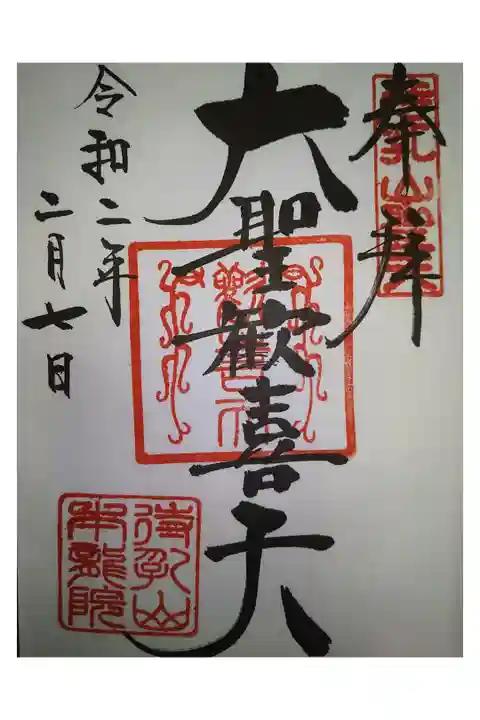 奉拝
大聖歓喜天
令和二年
二月七日
待乳山
本龍院